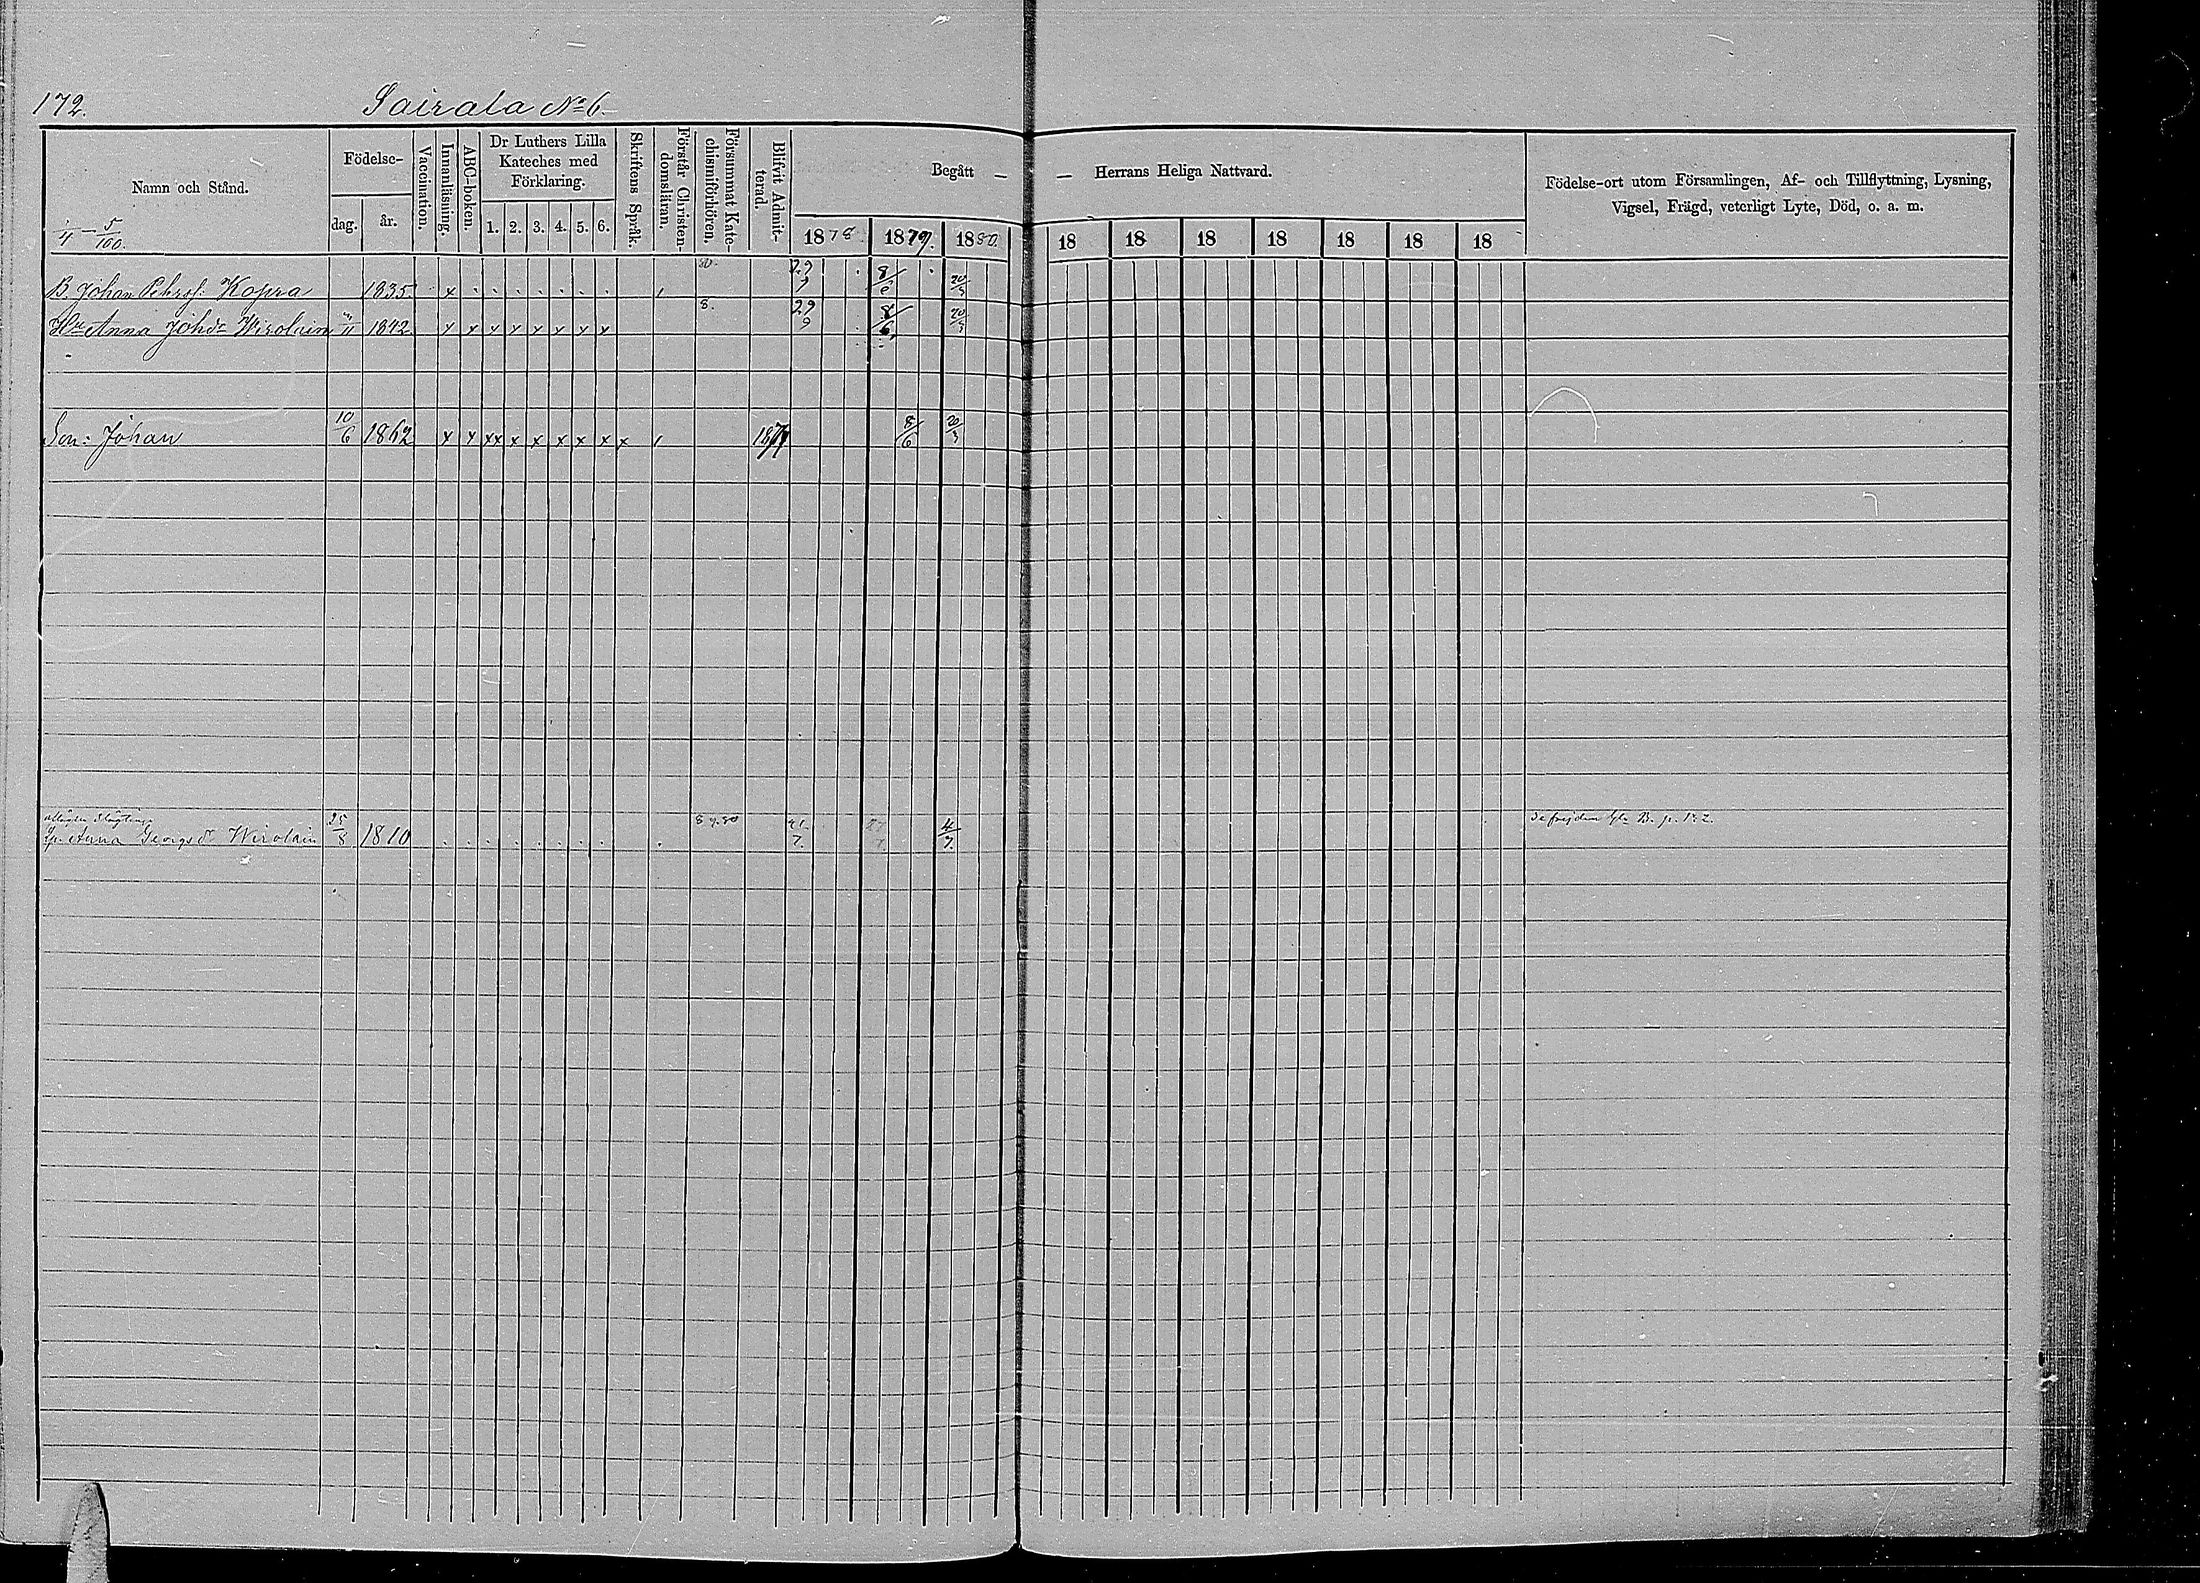 172. Sairala No 6.
Namn och Stånd.
Födelse-
dag.
år.
Vaccination.
Innanläsning.
ABC-boken.
Dr Luthers Lilla
Kateches med
Förklaring.
1. 2. 3. 4. 5. 6.
Skriftens Språk.
Förstår Christen-
domsläran.
Försummat Kate-
chismiförhören.
Blifvit Admit-
terad.
Begått — — Herrans Heliga Nattvard.
1878. 1879. 1880. 18 18 18 18 18 18 18
Födelse-ort utom Församlingen, Af- och Tillflyttning, Lysning,
Vigsel, Frägd, veterligt Lyte, Död, o. a. m.
5/100.
B. Johan Pehrss: Kopra 1835. x 80. 29/9 8/6 20/3
Hu Anna Johdr Wirolain 1842 x x x x x x x x 8. 29/9 8/6 20/3
Son: Johan 10/6 1862 x x xx x x x x x x 1879 8/6 20/3
Anna Georgsdr Wirolain 25/8 1810 21/7. 4/7.
B. p. 172.